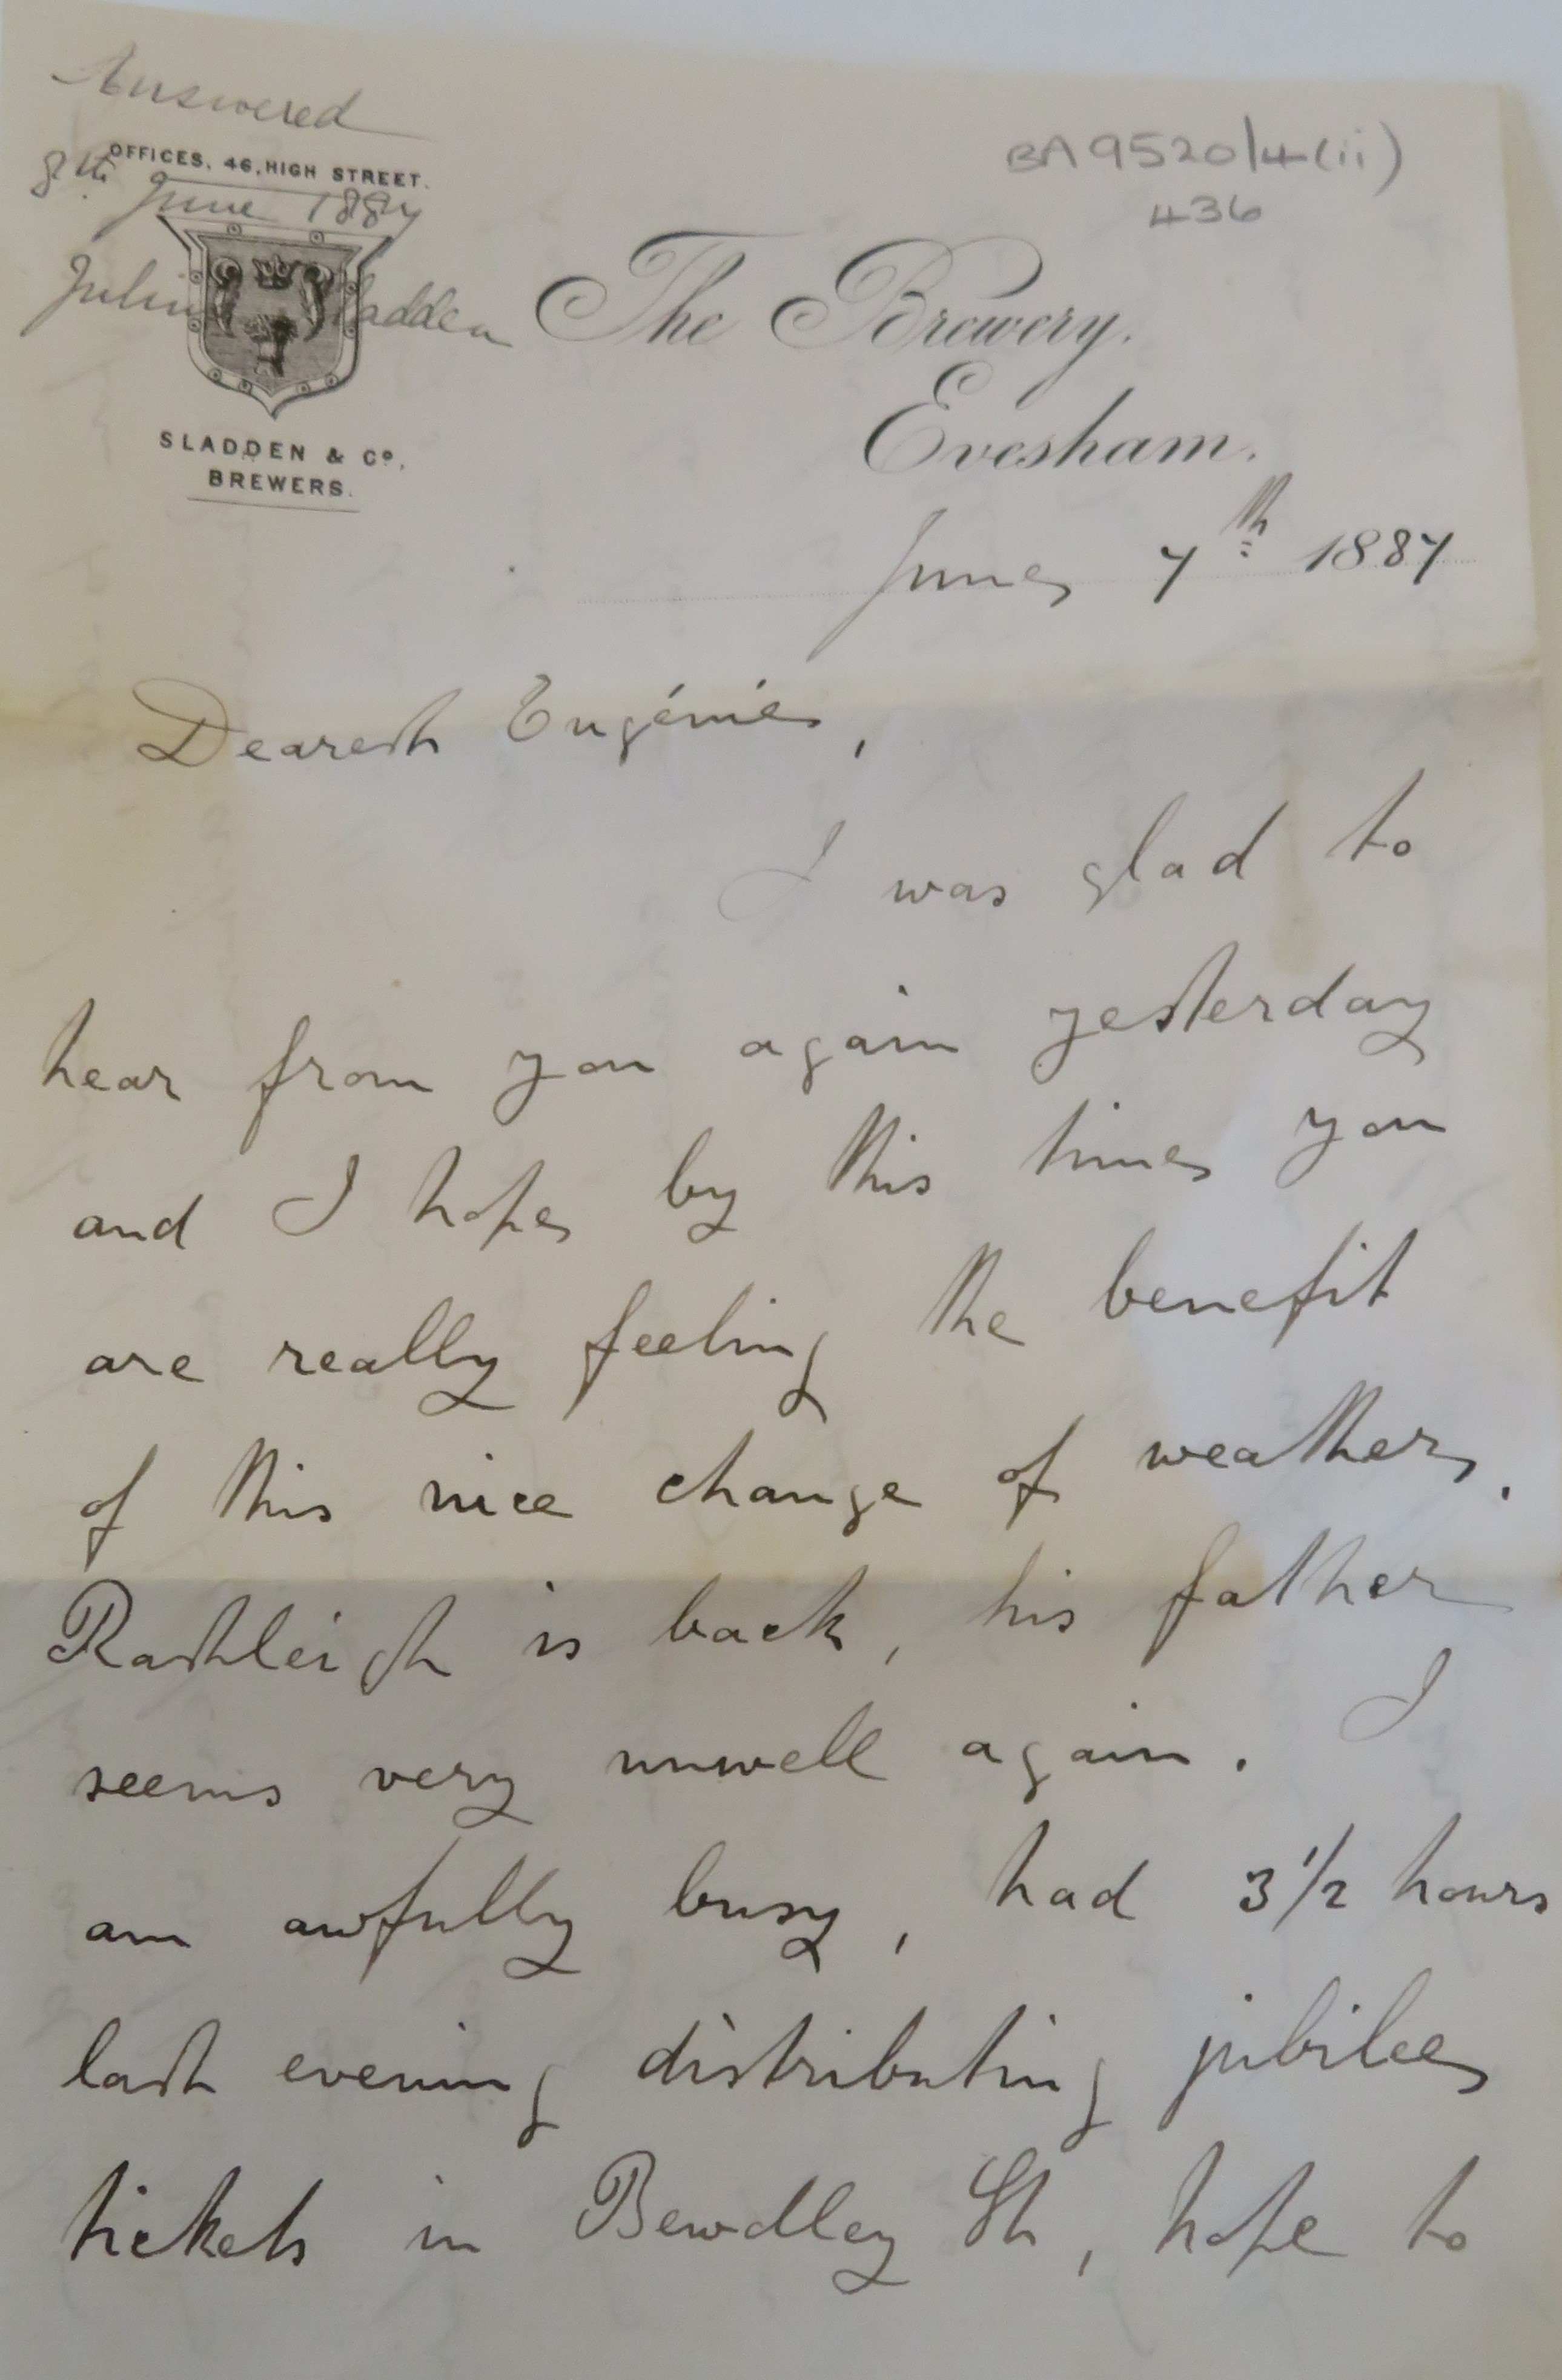 Answered
OFFICES, 46, HIGH STREET.
8th June 1887
Julius Sladden
SLADDEN & Co.
BREWERS.
BA9520/4(ii)
436
The Brewery.
Evesham.
June 7th 1887
Dearest Eugénie,
I was glad to
hear from you again yesterday
and I hope by this time you
are really feeling the benefit
of this nice change of weather.
Rashleigh is back, his father
seems very unwell again. I
am awfully busy, had 3 1/2 hours
last evening distributing jubilee
tickets in Bewdley St, hope to